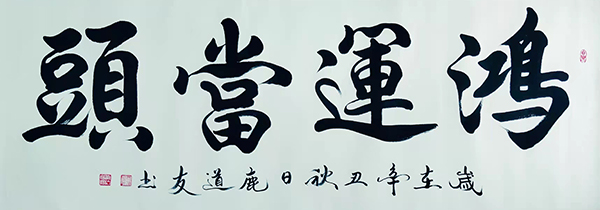 鴻運當頭
歲在辛丑秋日鹿道友书